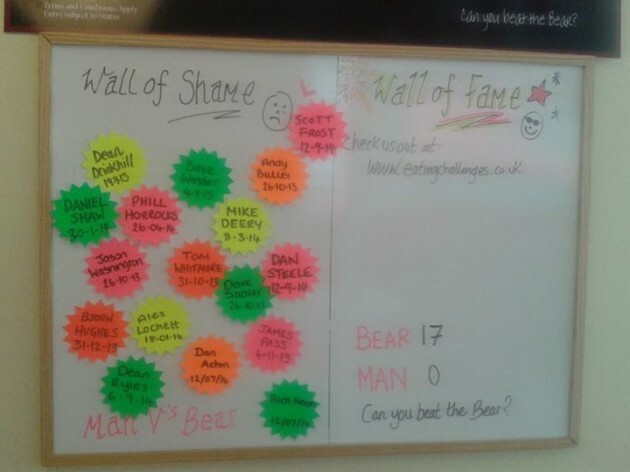 Terms and Conditions Apply
Entry subject to status
Can you beat the Bear?
Wall of Shame
SCOTT
FROST
12-9-14
Dean
Drinkhill
Dave
Andy
Butler
26-10-13
DANIEL
SHAW
20-1-14
PHILL
HORROCKS
26-04-14
MIKE
DEERY
8-3-14
Jason
Washington
26-10-13
TOM
WHITMORE
31-10-13
DAN
STEELE
12-9-14
Dave
Sadler
26-10-13
BJORN
HUGHES
31-12-13
Alex
Lockett
18-01-14
JAMES
PASS
4-11-13
Dan
Acton
12/07/14
Dean
6-9-14
Rich
12/07/14
Man V's Bear
Wall of Fame
Check us out at:
www.eatingchallenges.co.uk
BEAR 17
MAN 0
Can you beat the Bear?